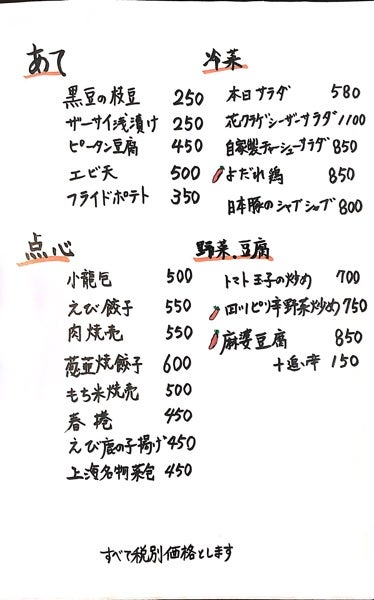 あて
黒豆の枝豆 250
ザーサイ浅漬け 250
ピータン豆腐 450
エビ天 500
フライドポテト 350
冷菜
本日サラダ 580
花クラゲシーザーサラダ 1100
自家製チャーシューサラダ 850
よだれ鶏 850
日本豚のシャブシャブ 800
点心
小龍包 500
えび餃子 550
肉焼売 550
葱韮焼餃子 600
もち米焼売 500
春捲 450
えび鹿の子揚げ 450
上海名物菜包 450
野菜、豆腐
トマト玉子の炒め 700
四川ピリ辛野菜炒め 750
麻婆豆腐 850
+追辛 150
すべて税別価格とします